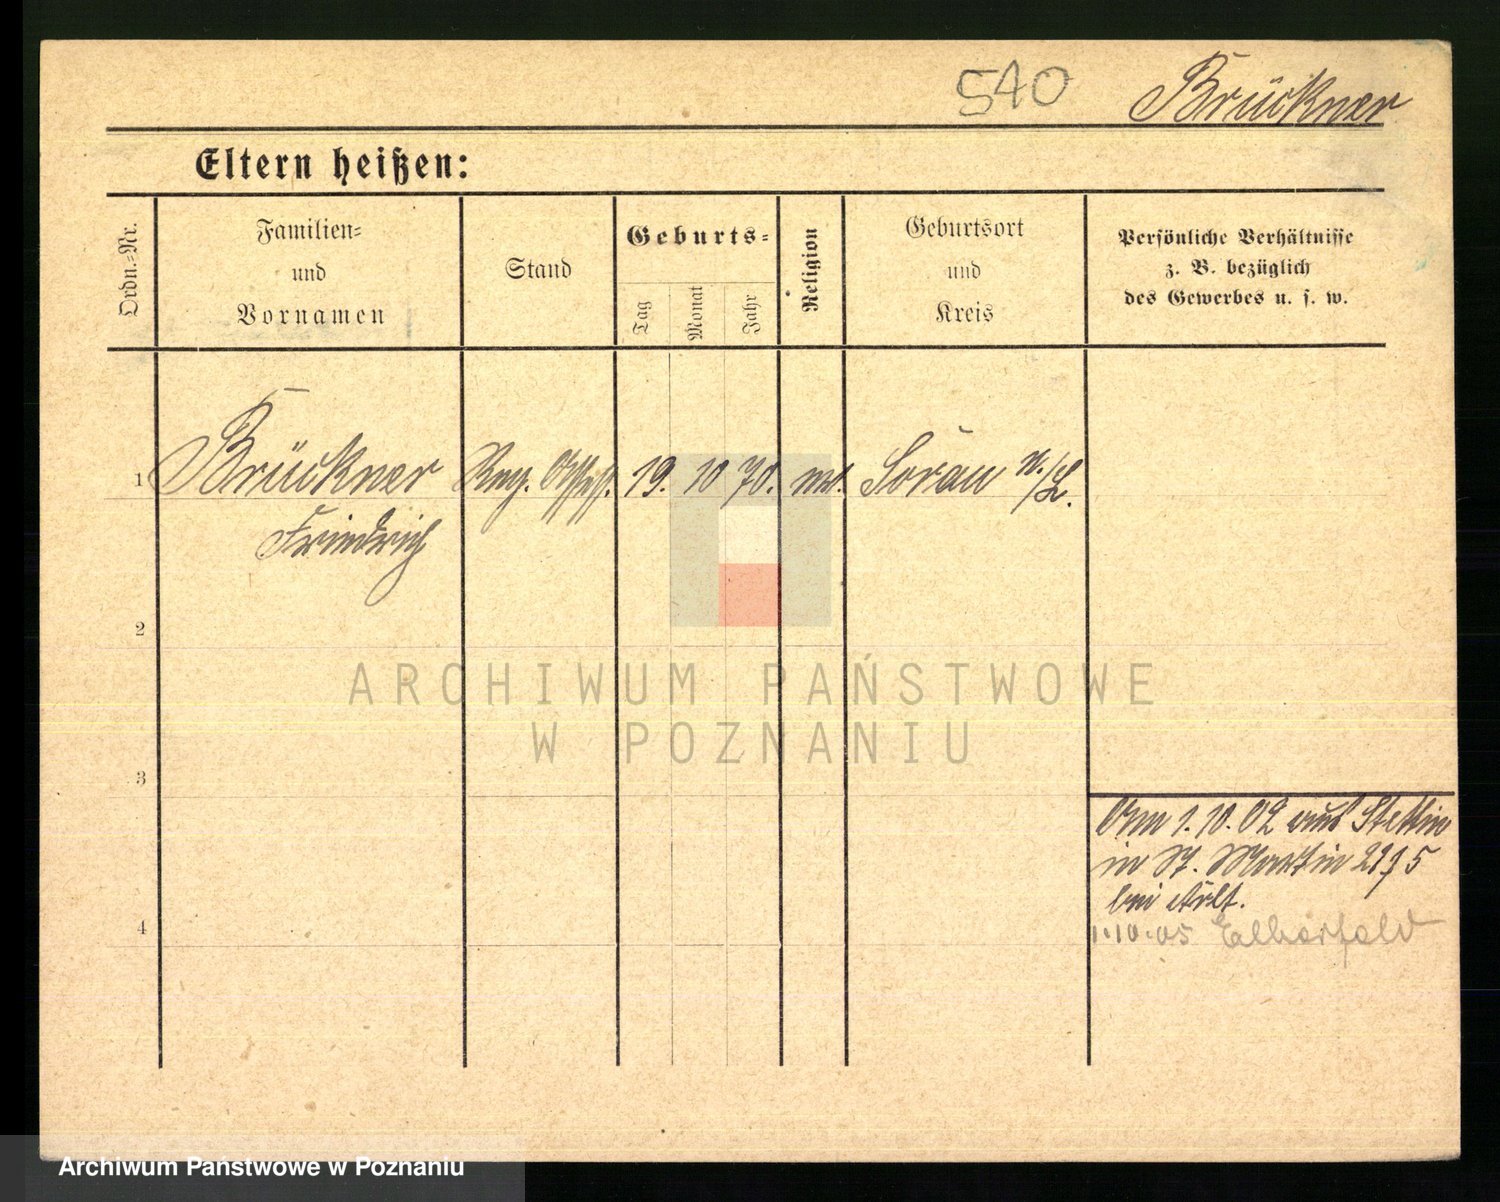 540 Brückner
Eltern heißen:
Ordn.=Nr.
Familien=
und
Vornamen
Stand
Geburts=
Tag
Monat
Jahr
Religion
Geburtsort
und
Kreis
Persönliche Verhältnisse
z. B. bezüglich
des Gewerbes u. s. w.
1 Brückner Reg. Assess. 19. 10 70. ev. Sorau N./L.
Friedrich
2
3
4
Am 1.10.02 aus Stettin
in St. Martin 5
bei Arlt.
1.10.05 Elberfeld
ARCHIWUM PAŃSTWOWE
W POZNANIU
Archiwum Państwowe w Poznaniu